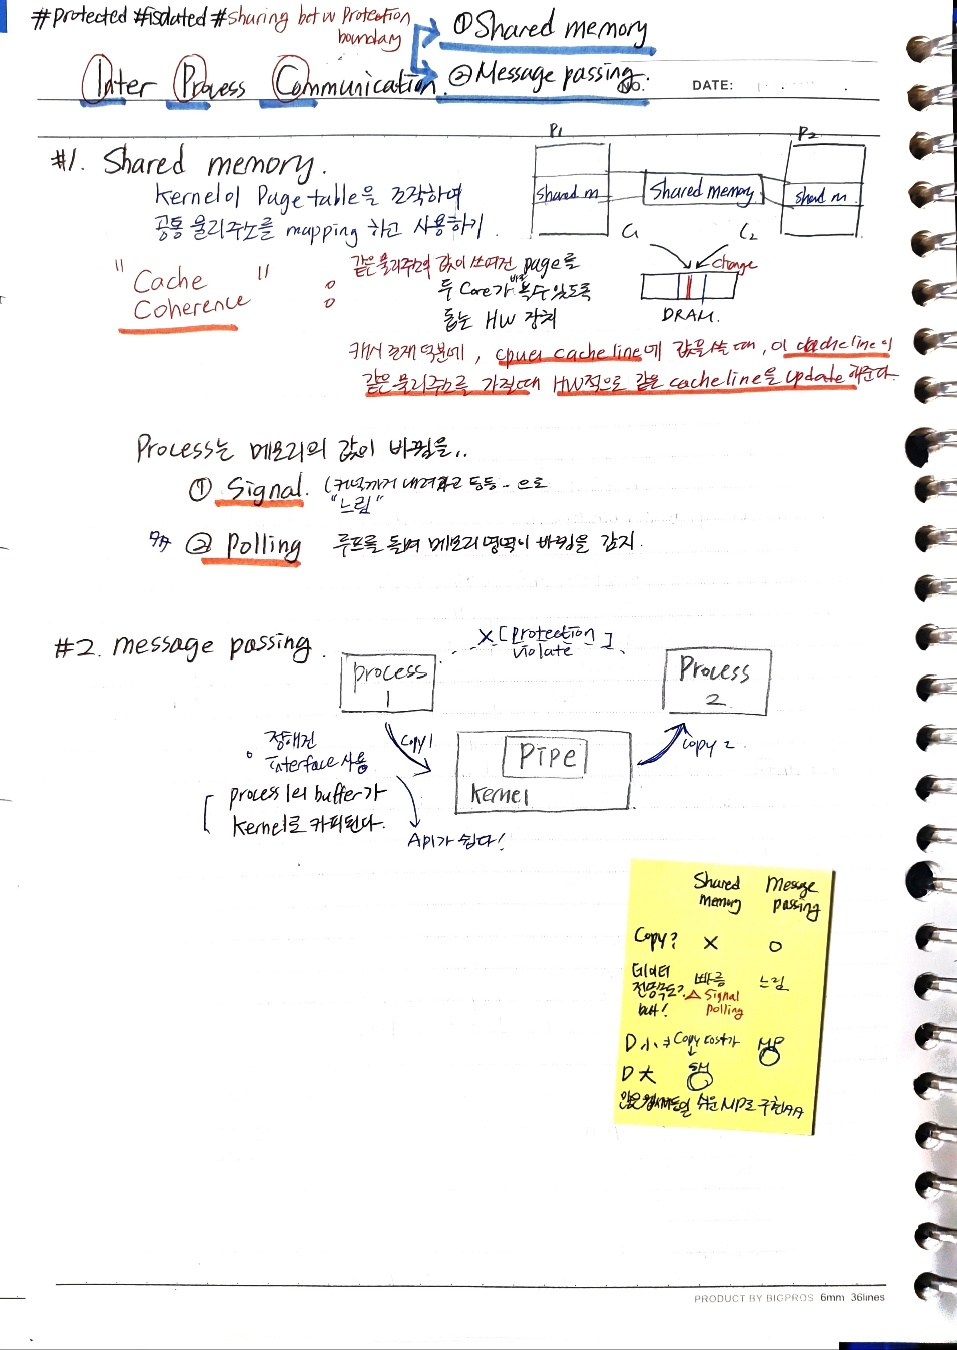 #protected #isolated #sharing betw Protection boundary
① Shared memory
Inter Process Communication.
② Message passing.
NO.
DATE:
#1. Shared memory.
Kernel이 Page table을 조작하여
공통 물리주소를 mapping 하고 사용하기.
P1
P2
Shared m
Shared memory
Shared m
C1
C2
change
DRAM.
"Cache
Coherence"
같은 물리주소의 값이 쓰여진 page를
두 Core가 바로 볼 수 있도록
돕는 HW 장치
캐시 존재 덕분에, cpu의 cache line에 값을 쓸 때, 이 cache line이
같은 물리주소를 가질때 HW적으로 같은 cache line을 update 해준다.
Process는 메모리의 값이 바뀜을..
① Signal. (커널까지 내려가고 등등 - 으로
"느림"
② Polling 루프를 돌며 메모리 영역이 바뀜을 감지.
#2. message passing.
X [protection violate]
process 1
Process 2
copy 1
copy 2
PIPE
Kernel
정해진
interface 사용
process 1의 buffer가
Kernel로 카피된다.
API가 쉽다!
Shared memory
Message passing
Copy? X O
데이터 전송속도? 빠름 느림
but! △ Signal polling
D 小 → Copy cost가 MP
D 大 SM
쉬운 MP로 구현
PRODUCT BY BIGPROS 6mm 36lines